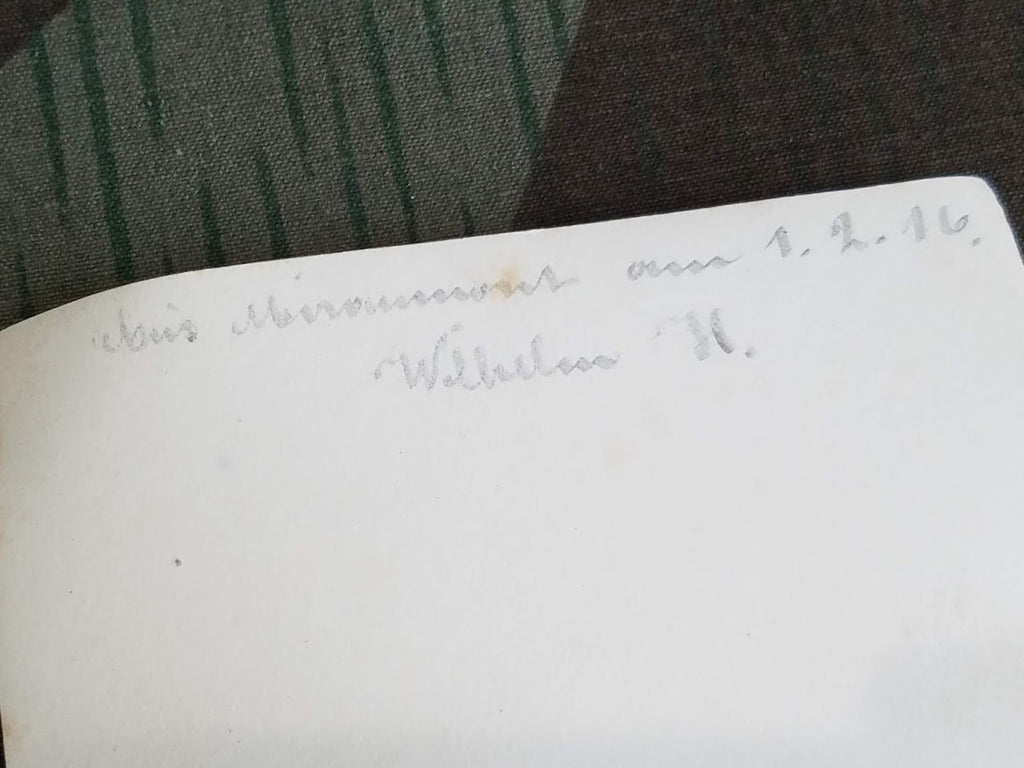 Aus Miraumont am 1. 2. 16.
Wilhelm H.